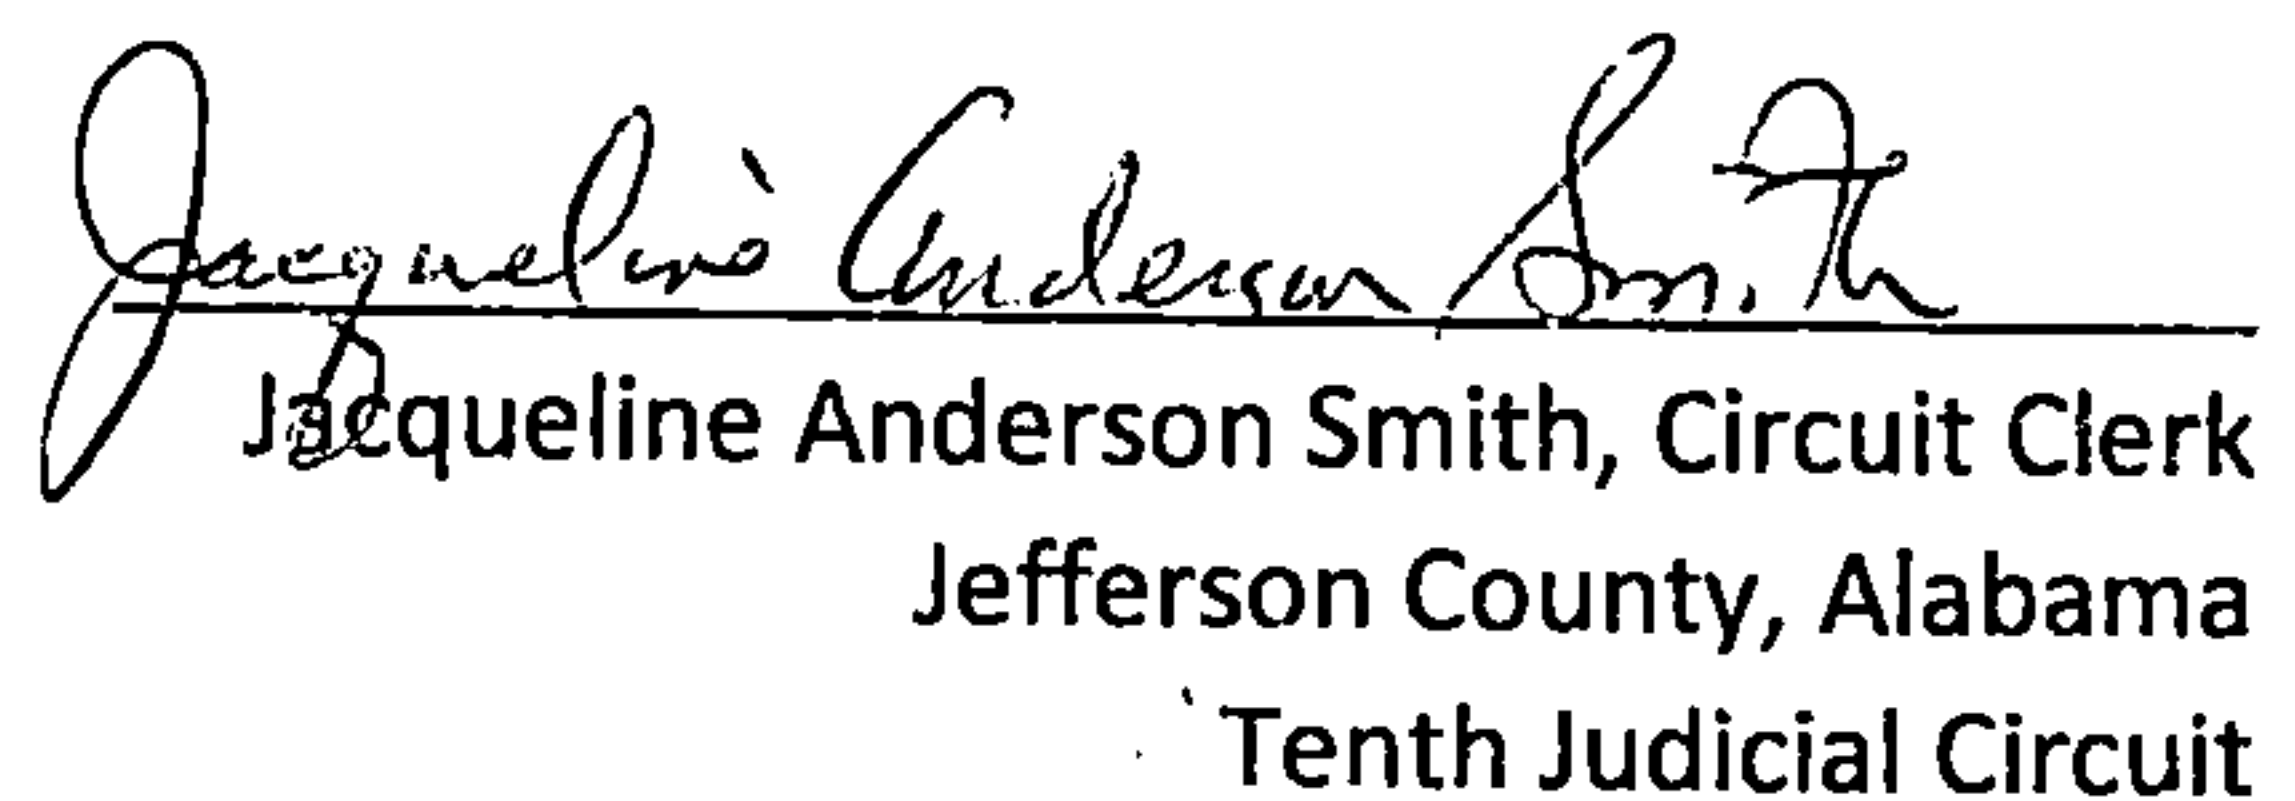 Jacqueline Anderson Smith
Jacqueline Anderson Smith, Circuit Clerk
Jefferson County, Alabama
Tenth Judicial Circuit